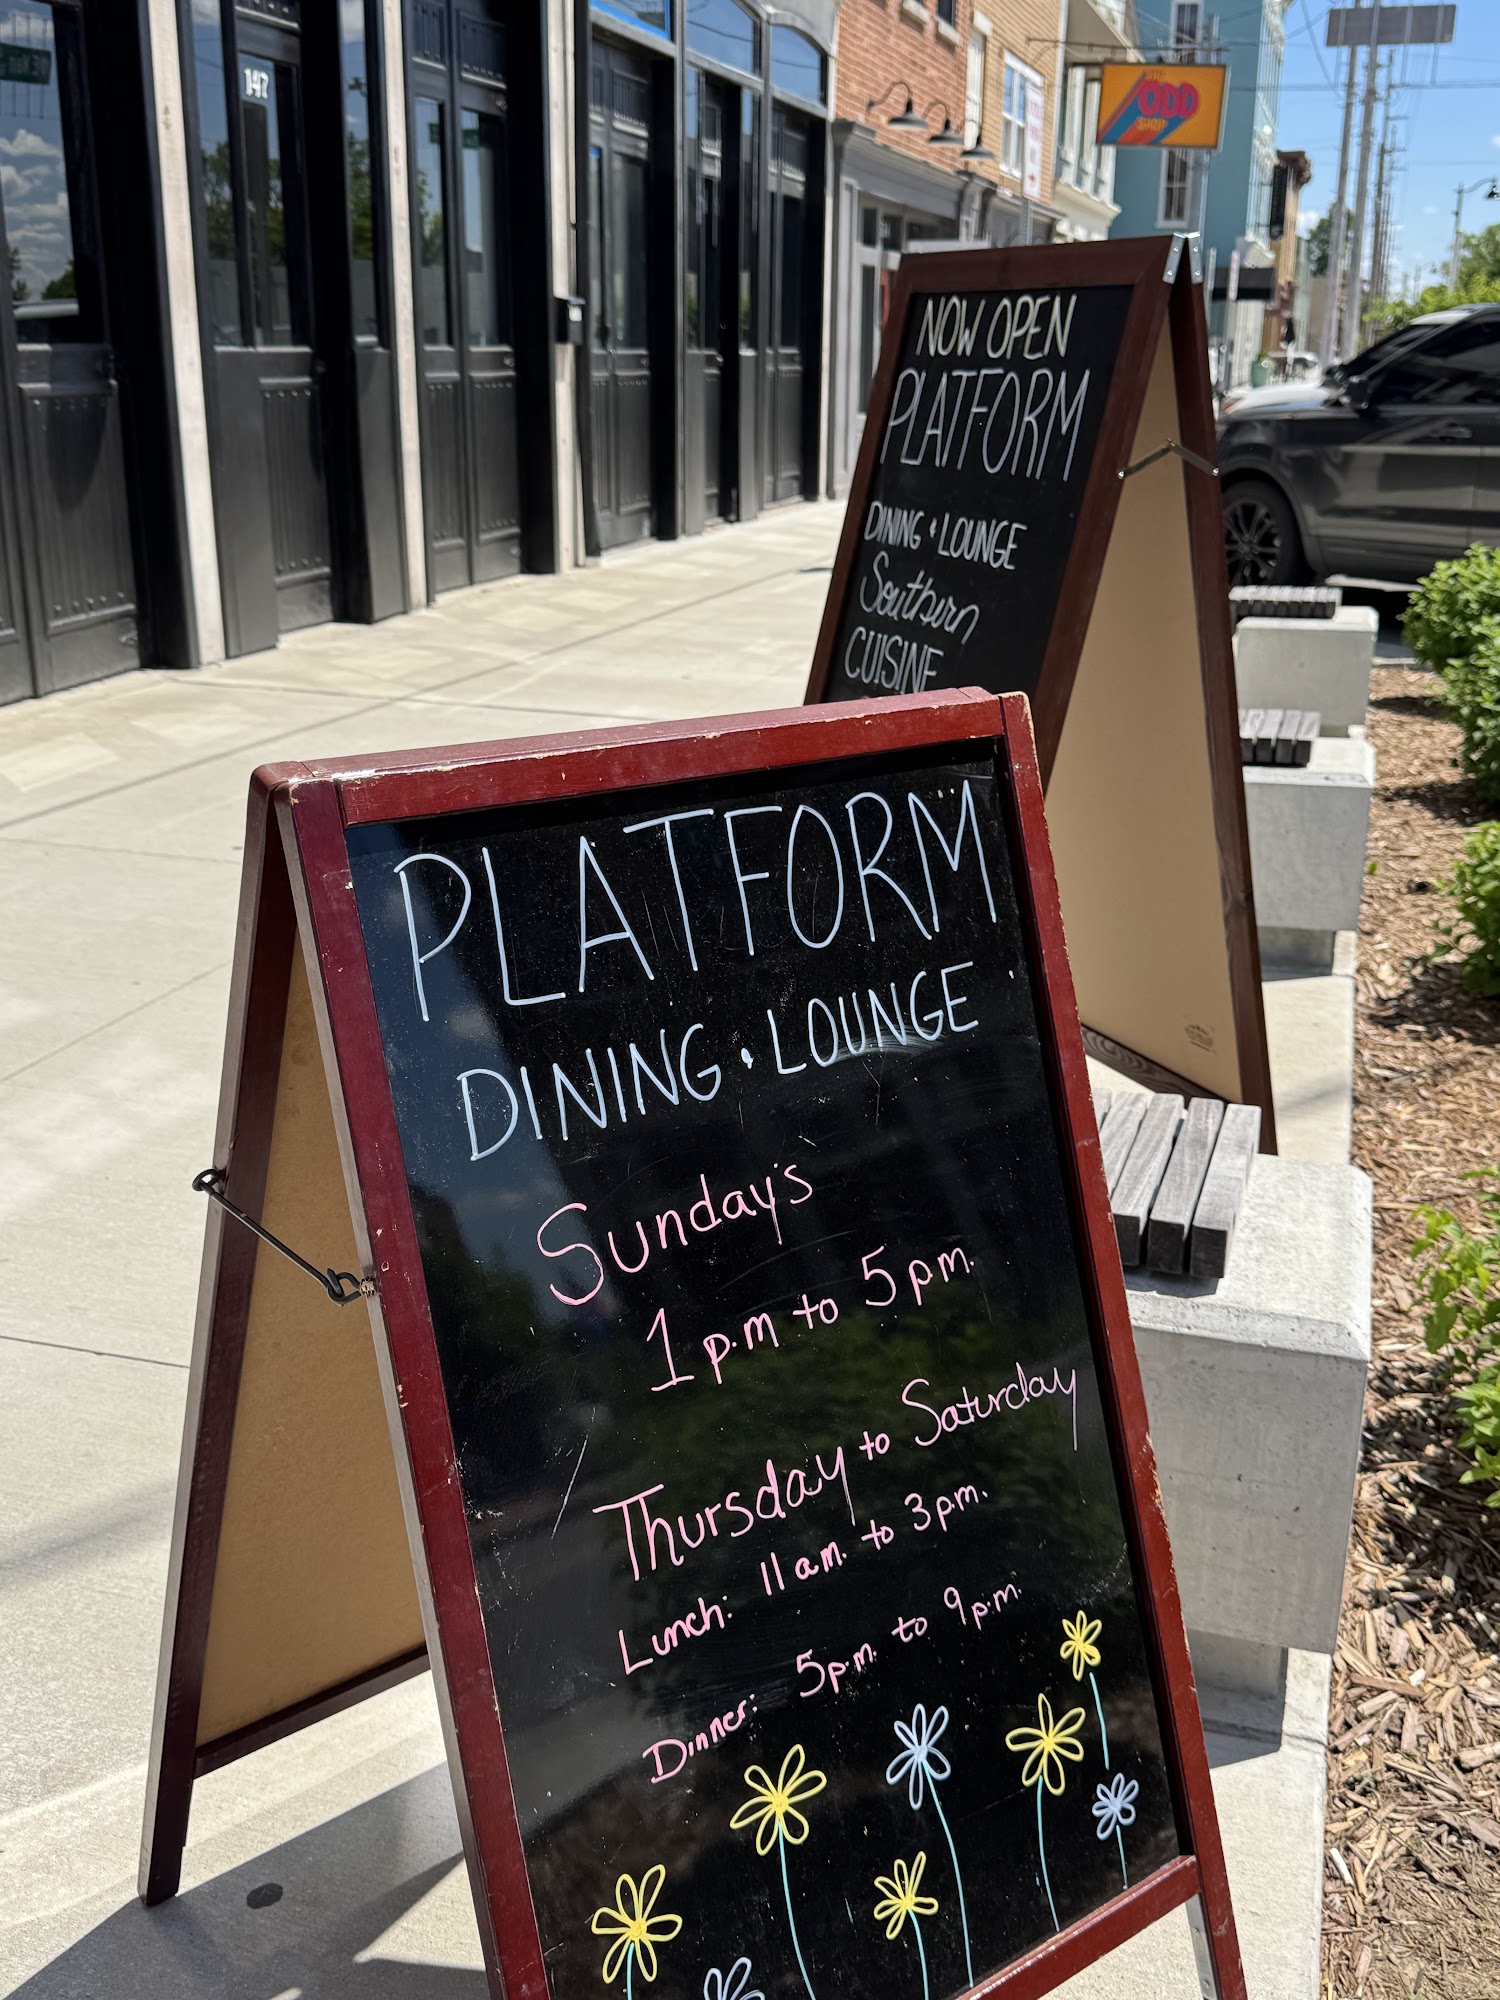 147
THE
ODD
SHOP
NOW OPEN
PLATFORM
DINING • LOUNGE
Southern
CUISINE
PLATFORM
DINING • LOUNGE
Sunday's
1 p.m to 5 pm.
Thursday to Saturday
Lunch: 11 am. to 3 p.m.
Dinner: 5 p.m. to 9 p.m.